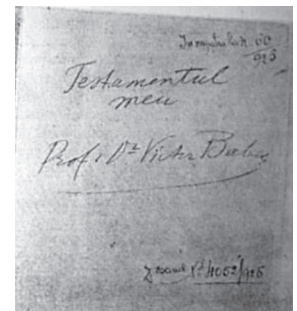 60
926
Testamentul
meu
Prof. Dr Victor Babeș
No 4052/926